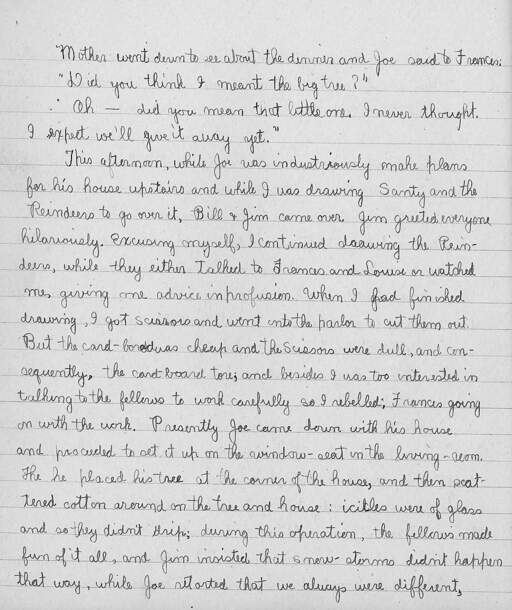 "Mother went down to see about the dinner and Joe said to Frances:
"Did you think I meant the big tree?"
"Oh — did you mean that little one. I never thought.
I expect we'll give it away yet."
This afternoon, while Joe was industriously make plans
for his house upstairs and while I was drawing Santy and the
Reindeers to go over it, Bill & Jim came over. Jim greeted everyone
hilariously. Excusing myself, I continued drawing the Rein-
deers, while they either talked to Frances and Louise or watched
me, giving me advice in profusion. When I had finished
drawing, I got scissors and went into the parlor to cut them out.
But the card-board was cheap and the scissors were dull, and con-
sequently, the cardboard tore; and besides I was too interested in
talking to the fellows to work carefully so I rebelled; Frances going
on with the work. Presently Joe came down with his house
and proceeded to set it up on the window-seat in the living-room.
The he placed his tree at the corner of the house, and then scat-
tered cotton around on the tree and house: icicles were of glass
and so they didn't drip; during this operation, the fellows made
fun of it all, and Jim insisted that snow-storms didn't happen
that way, while Joe retorted that we always were different,